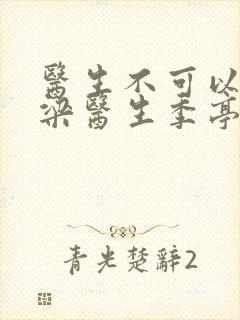 醫生不可以
梁醫生季亭
青光楚辭2